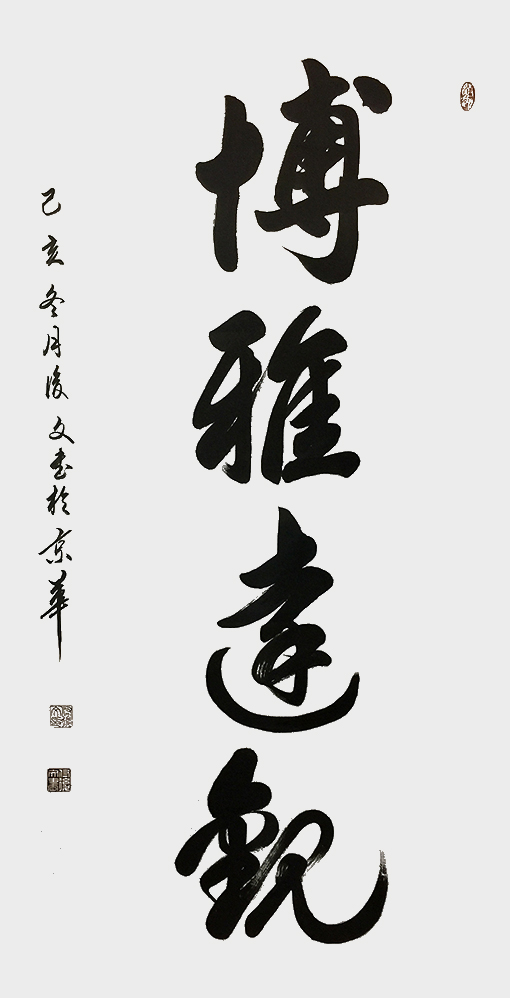 博雅達觀
己亥冬月後文書於京華